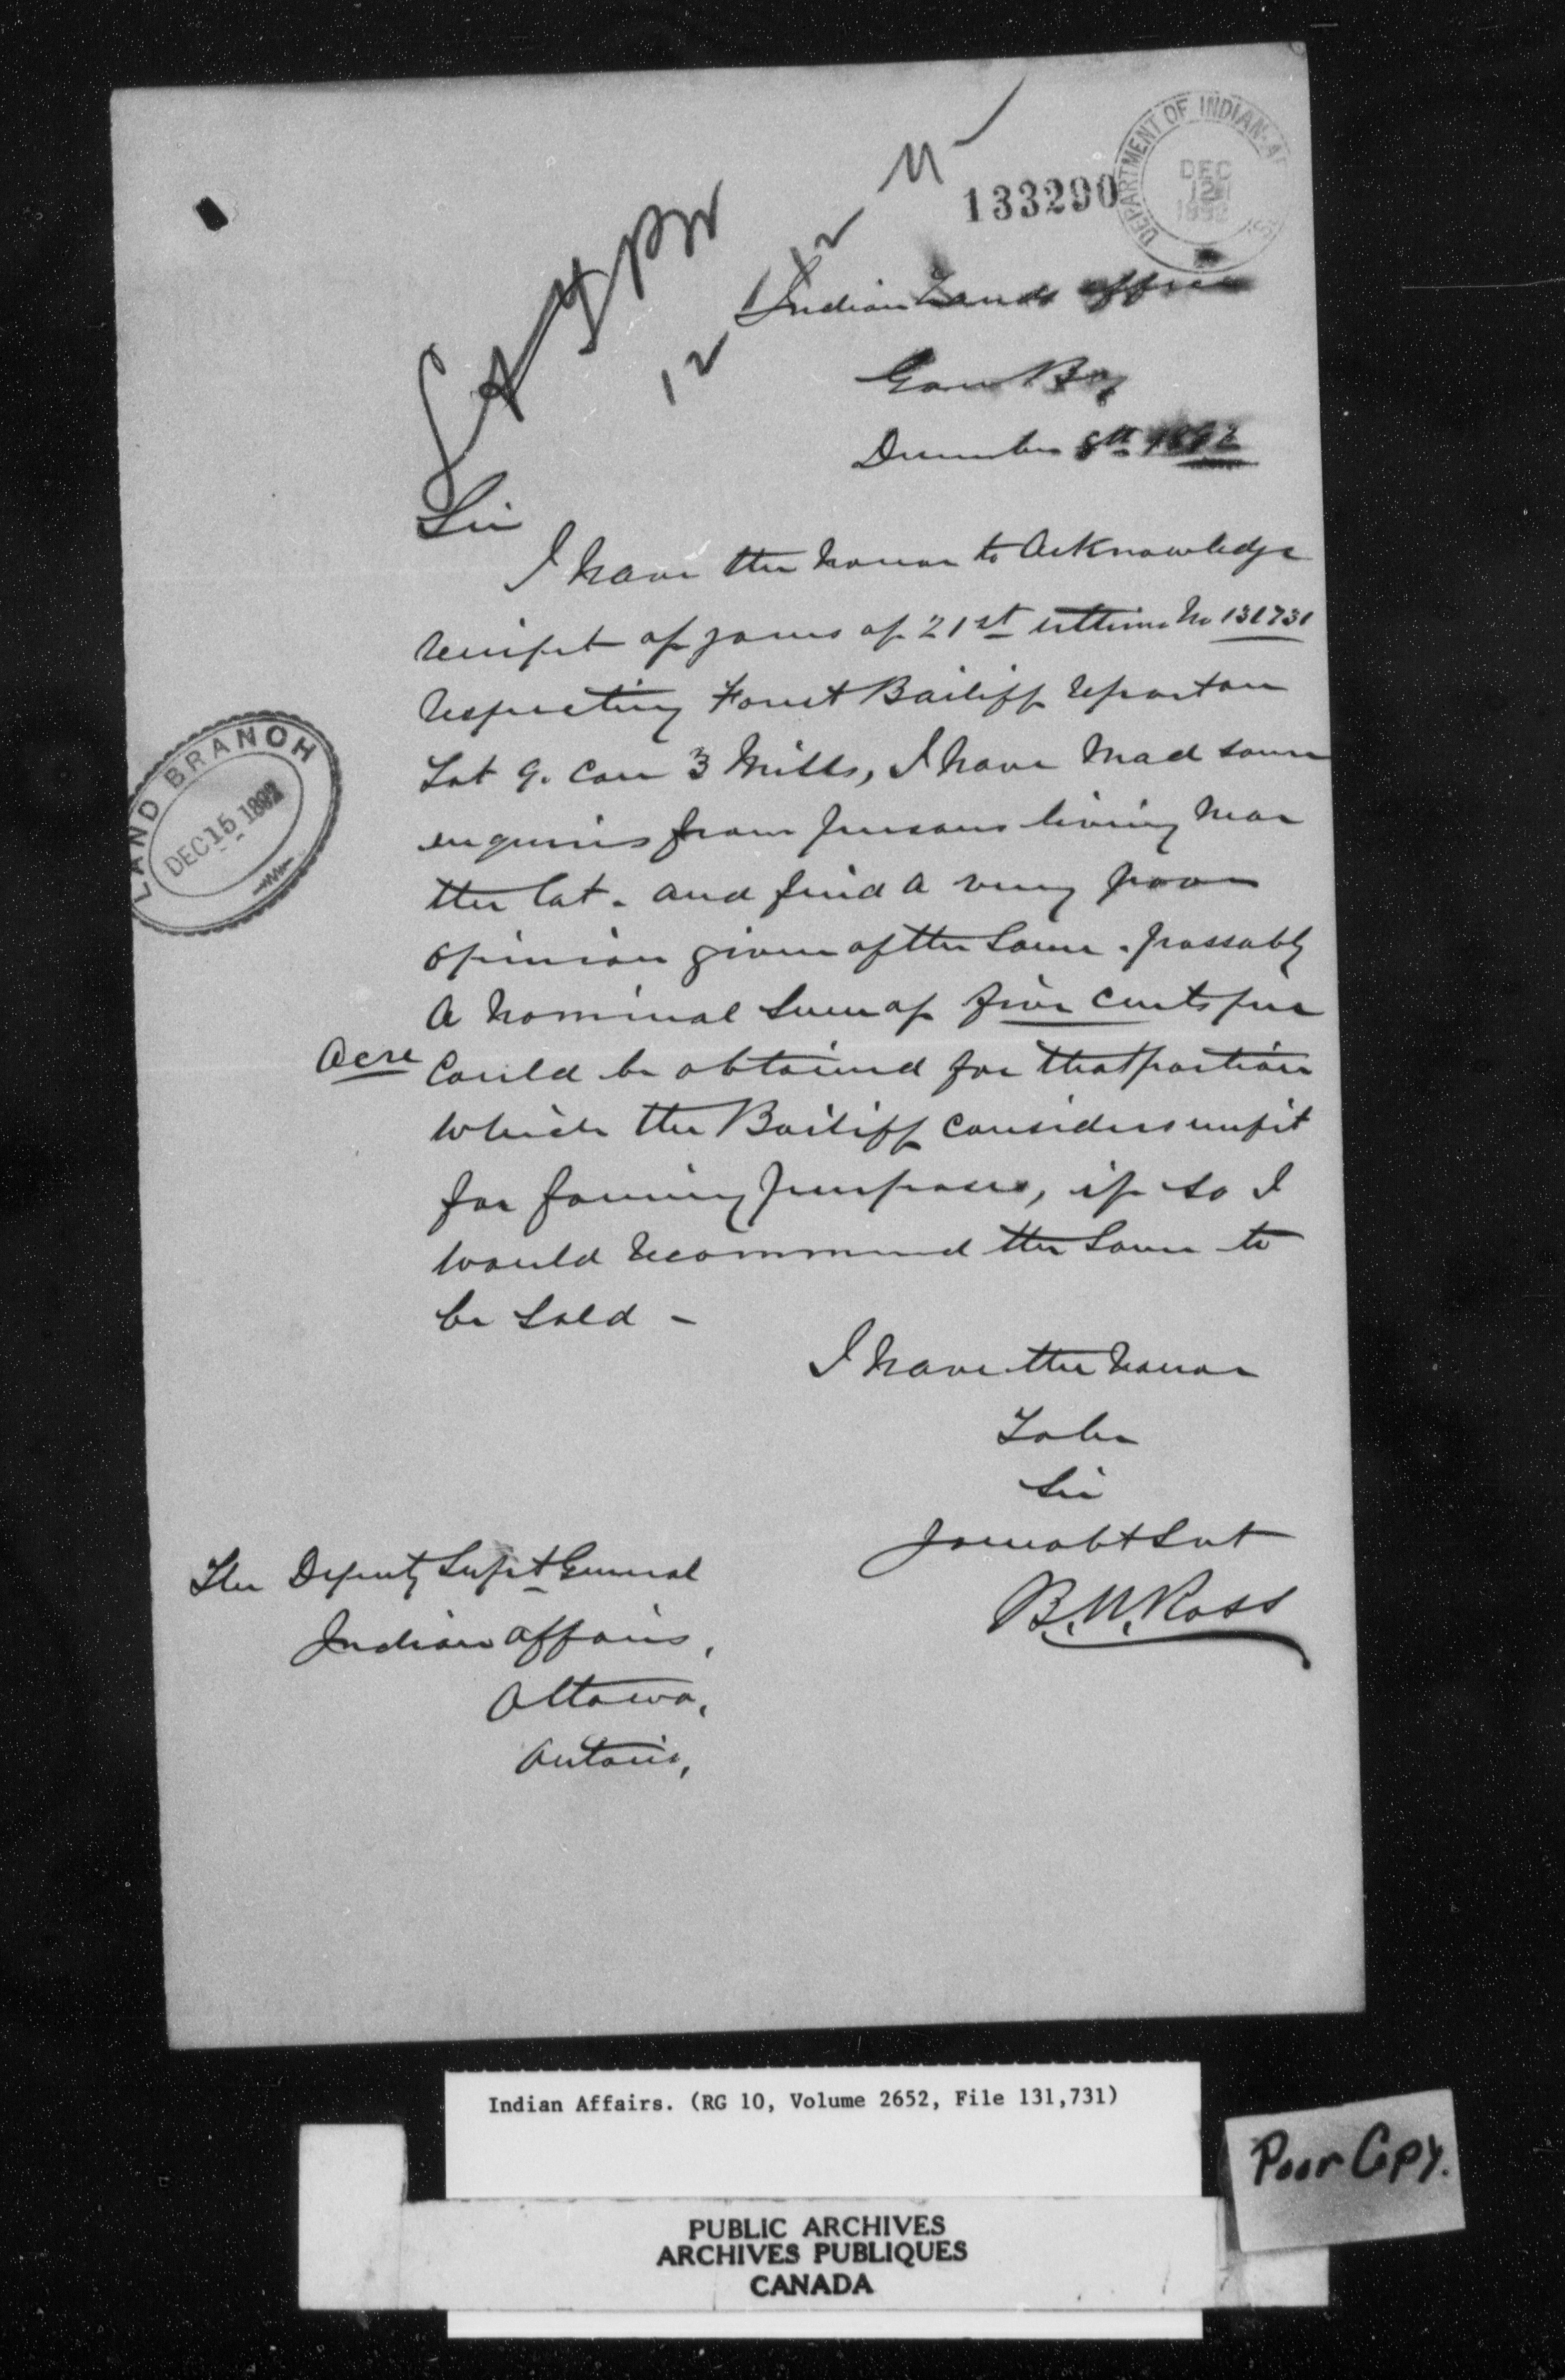 133290
DEPARTMENT OF INDIAN A
DEC
12
1892
Indian Lands Office
Gore Bay
December 8th 1892
Sir
I have the honor to Acknowledge
receipt of yours of 21st ultimo No 131731
respecting Forest Bailiff report on
Lot 9. Con 3 Mills, I have Mad some
enquiries from persons living near
the lot. and find a very poor
opinion given of the same. possably
a nominal sum of five cents per
Acre could be obtained for that portion
which the Bailiff considers unfit
for farming purposes, if so I
would recommend the same to
be sold -
I have the honor
To be
Sir
Your obt Svt
B. W. Ross
The Deputy Supt General
Indian Affairs,
Ottawa,
Ontario,
LAND BRANCH
DEC 15 1892
Indian Affairs. (RG 10, Volume 2652, File 131,731)
Poor Copy.
PUBLIC ARCHIVES
ARCHIVES PUBLIQUES
CANADA